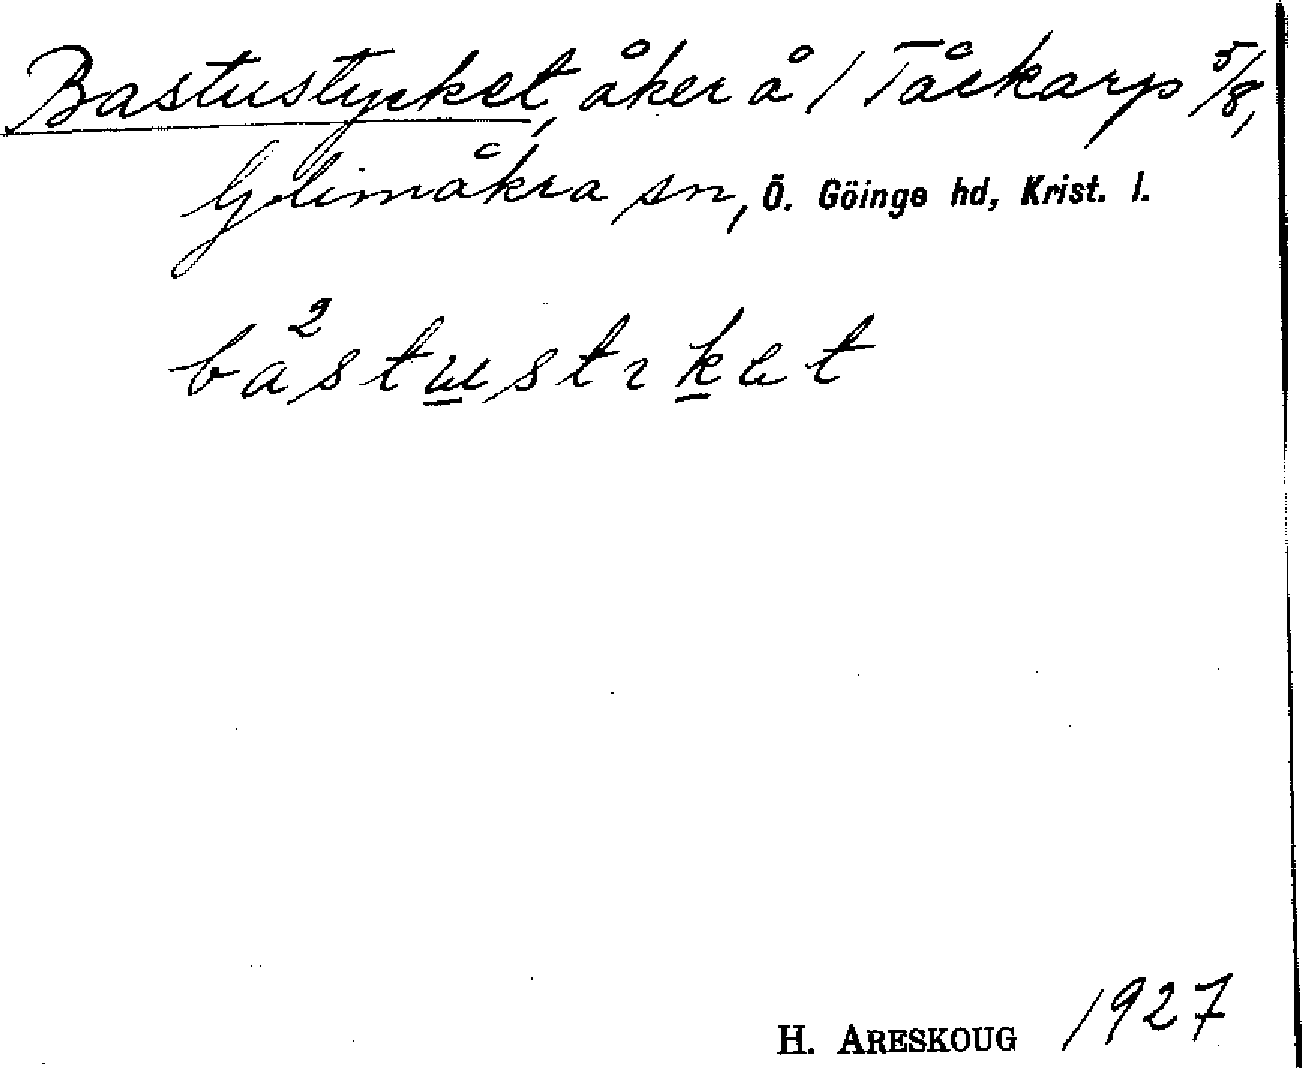 Bastustycket, åker å / Tåckarp 5/8,
Glimåkra sn, Ö. Göinge hd, Krist. l.
H. ARESKOUG 1927